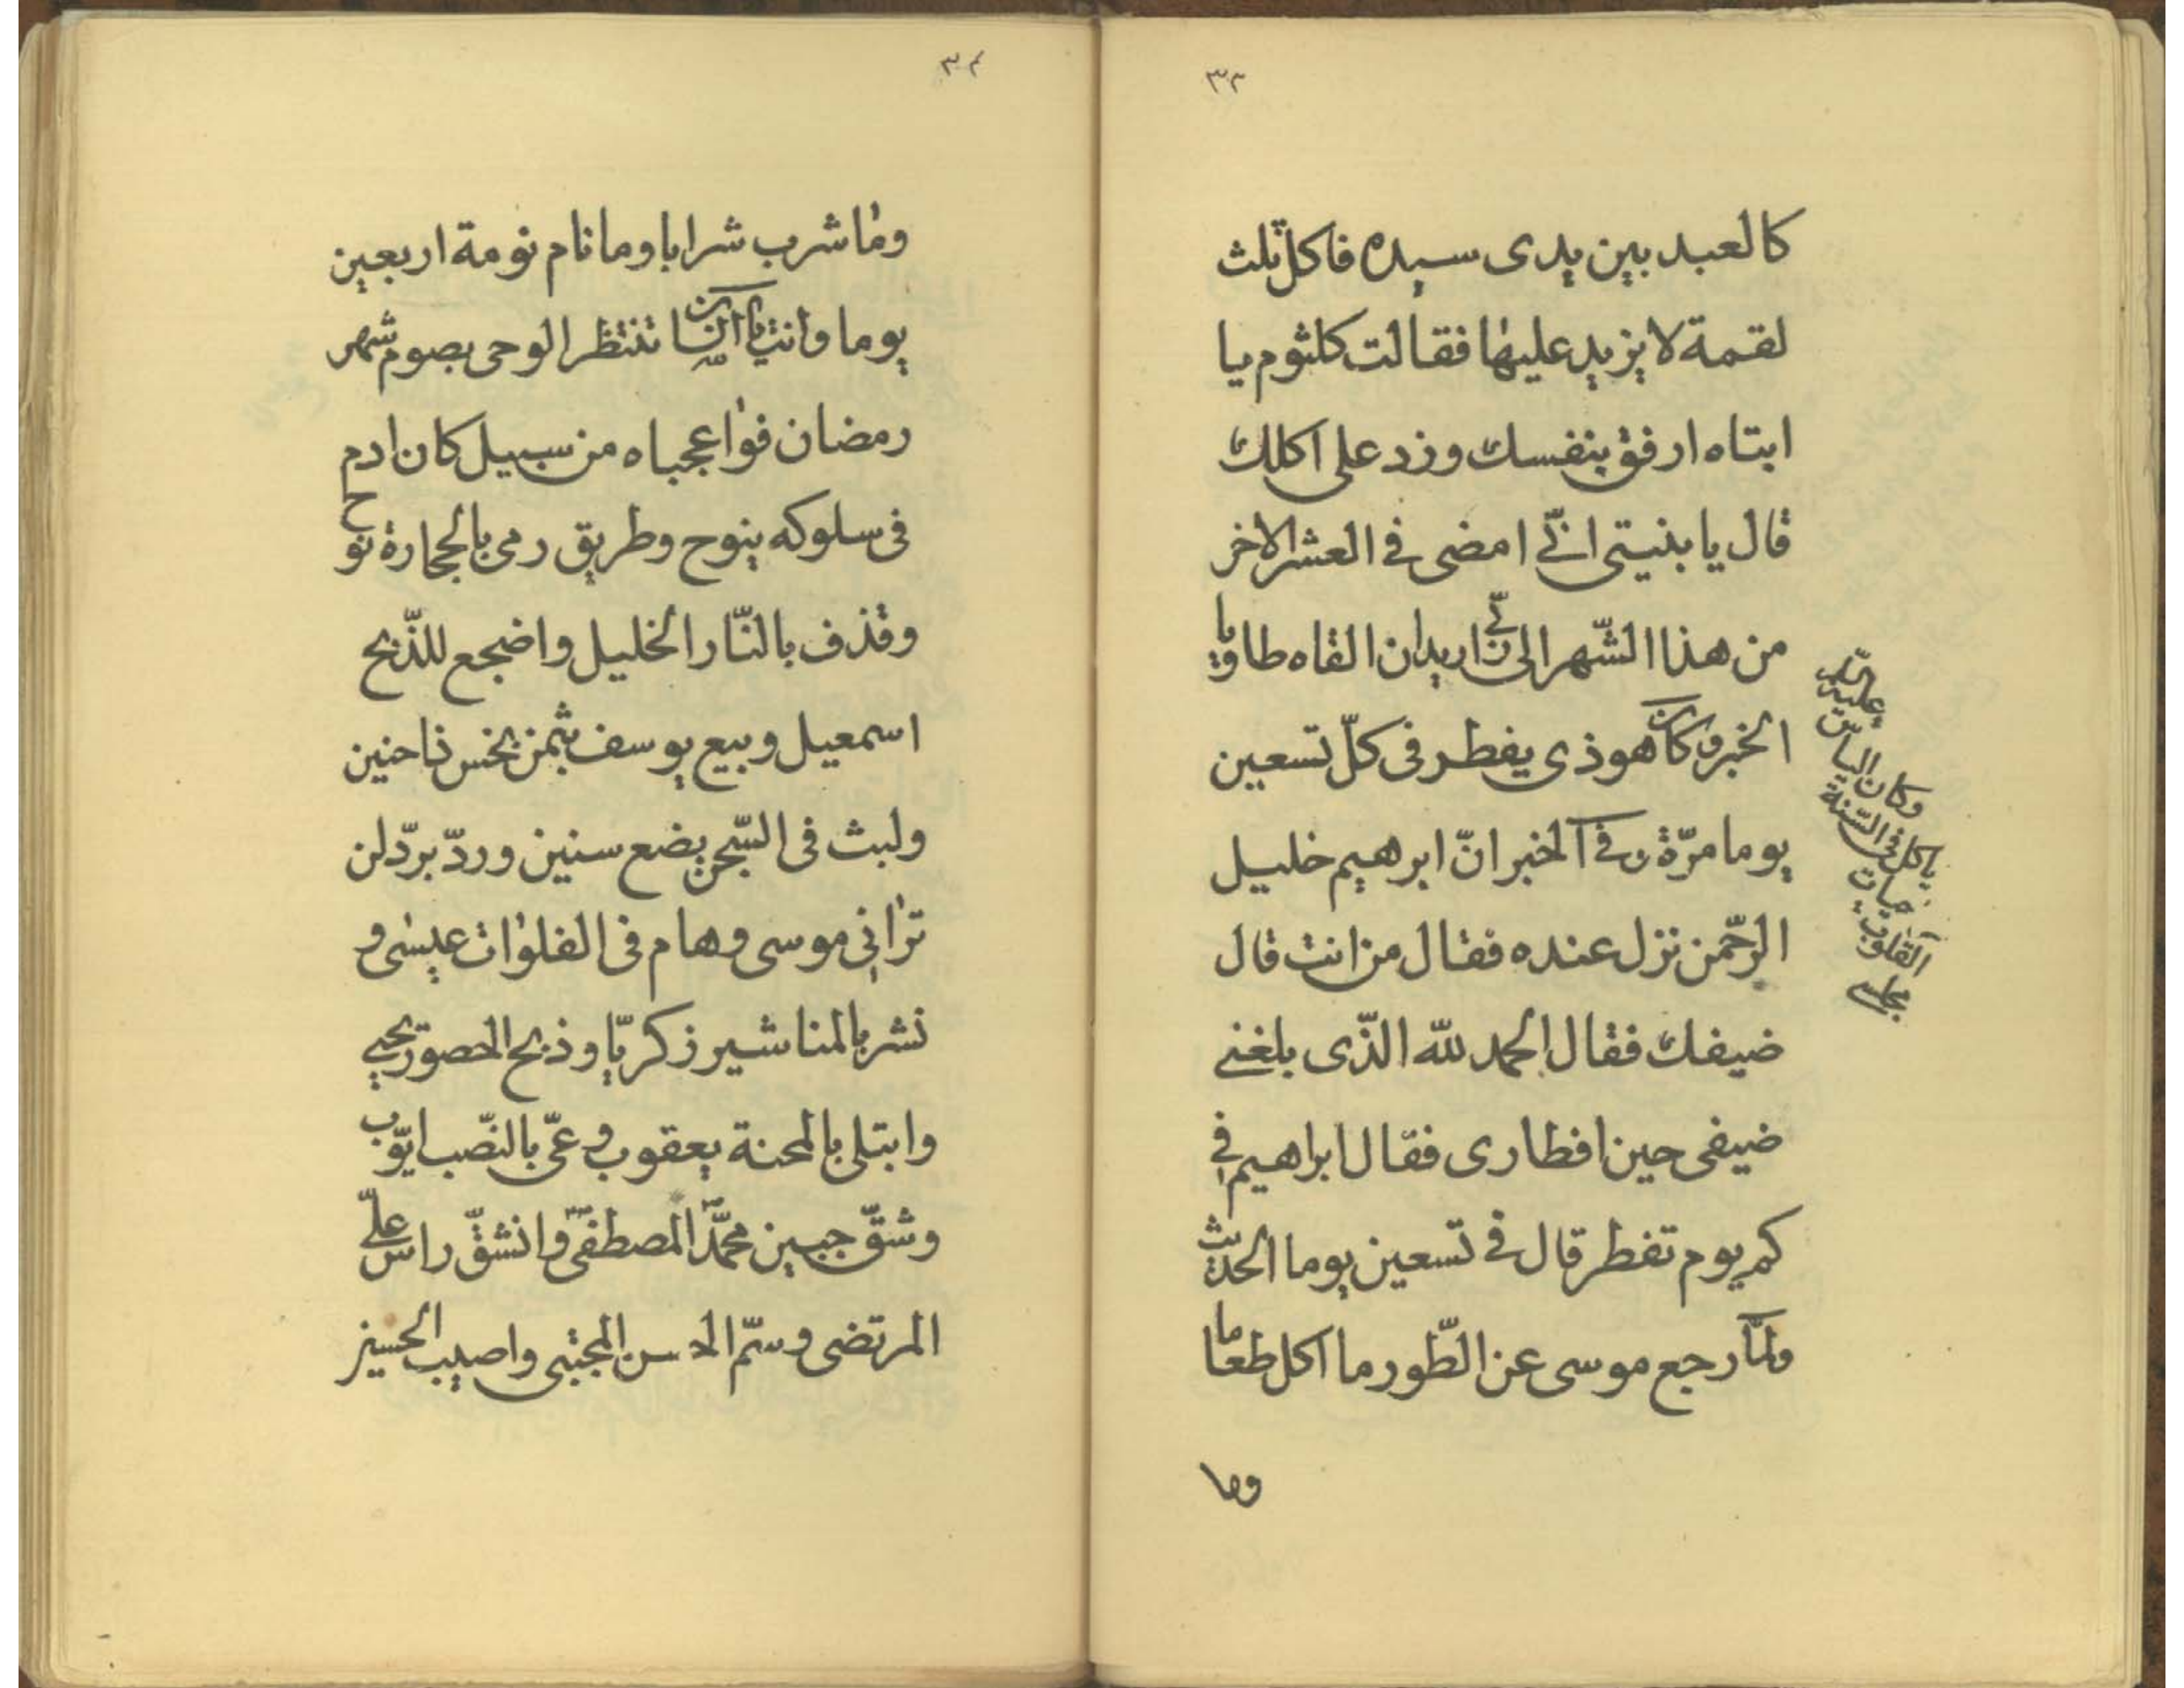 ٣٣
كالعبد بين يدى سيده فاكل ثلث
لقمة لا يزيد عليها فقالت كلثوم يا
ابتاه ارفق بنفسك وزد على اكلك
قال يا بنيتى انّى امضى فى العشر الاخر
من هذا الشّهر الى اريد ان القاه طاويا
الخبر وكان هوذى يفطر فى كلّ تسعين
يوما مرّة وفى الخبر انّ ابرهيم خليل
الرّحمن نزل عنده فقال من انت قال
ضيفك فقال الحمد لله الذّى بلغنى
ضيفى حين افطارى فقال ابراهيم فى
كم يوم تفطر قال فى تسعين يوما الحديث
ولمّا رجع موسى عن الطّور ما اكل طعاما
وما
وكان الياس
ياكل فى السّنة
حيات
القلوب
مجلسى
٣٤
وما شرب شرابا وما نام نومة اربعين
يوما وانت يا تنتظر الوحى بصوم شهر
رمضان فوا عجباه من سبيل كان ادم
فى سلوكه ينوح وطريق رمى بالحجارة نوح
وقذف بالنّار الخليل واضجع للذّبح
اسمعيل وبيع يوسف بثمن بخس ناحنين
ولبث فى السّجن بضع سنين وردّ بردّ لن
ترانى موسى وهام فى الفلوات عيسى و
نشر بالمناشير زكريّا وذبح الحصور يحيى
وابتلى بالمحنة يعقوب وعمّى بالنّصب ايّوب
وشقّ جبين محمّد المصطفى وانشقّ راس علىّ
المرتضى وسمّ الحسن المجتبى واصيب الحسين